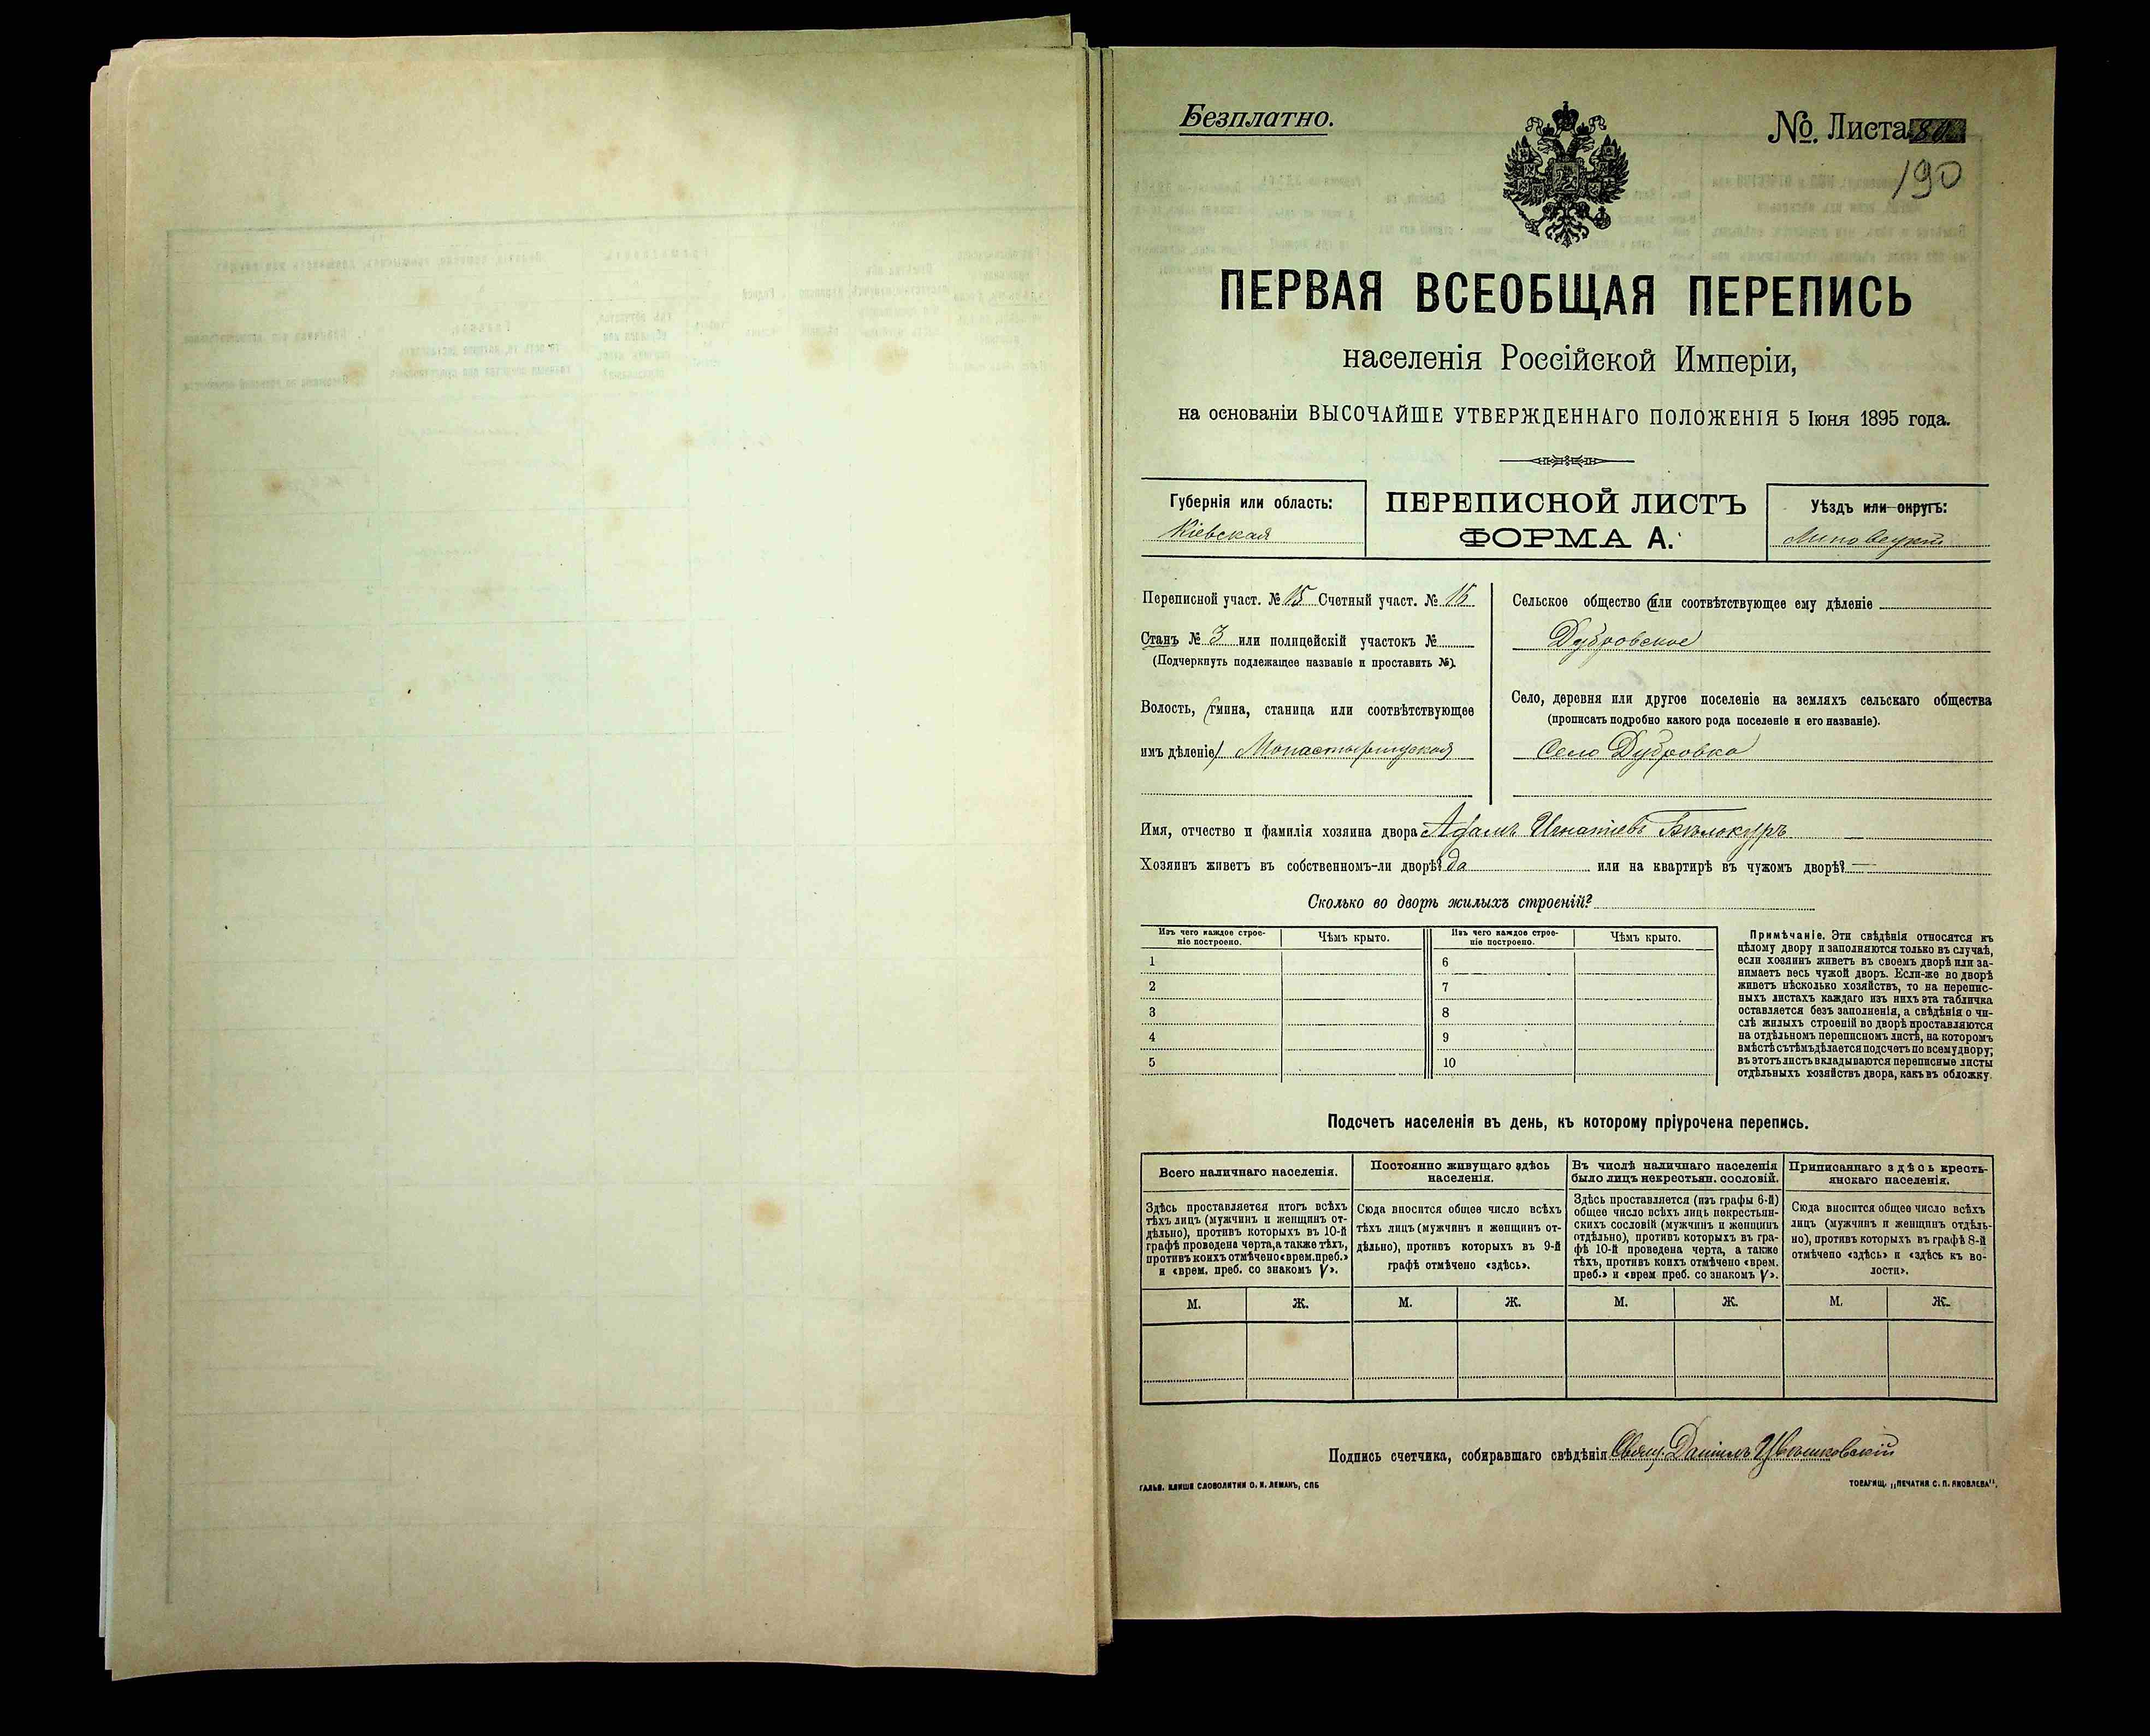 Безплатно.
№. Листа 80
190
ПЕРВАЯ ВСЕОБЩАЯ ПЕРЕПИСЬ
населенія Россійской Имперіи,
на основаніи ВЫСОЧАЙШЕ УТВЕРЖДЕННАГО ПОЛОЖЕНІЯ 5 Іюня 1895 года.
Губернія или область:
Кіевская
ПЕРЕПИСНОЙ ЛИСТЪ
ФОРМА А.
Уѣздъ или округъ:
Липовецкій
Переписной участ. № 15 Счетный участ. № 16
Станъ № 3 или полицейскій участокъ №
(Подчеркнуть подлежащее названіе и проставить №).
Волость, (гмина, станица или соотвѣтствующее
имъ дѣленіе) Монастырищская
Сельское общество (или соотвѣтствующее ему дѣленіе
Дубровское
Село, деревня или другое поселеніе на земляхъ сельскаго общества
(прописать подробно какого рода поселеніе и его названіе).
Село Дубровка
Имя, отчество и фамилія хозяина двора Адамъ Игнатіевъ Бѣлокуръ
Хозяинъ живетъ въ собственномъ-ли дворѣ? да или на квартирѣ въ чужомъ дворѣ? —
Сколько во дворѣ жилыхъ строеній?
Изъ чего каждое строе-
ніе построено.
Чѣмъ крыто.
Изъ чего каждое строе-
ніе построено.
Чѣмъ крыто.
1 6
2 7
3 8
4 9
5 10
Примѣчаніе. Эти свѣдѣнія относятся къ
цѣлому двору и заполняются только въ случаѣ,
если хозяинъ живетъ въ своемъ дворѣ или за-
нимаетъ весь чужой дворъ. Если-же во дворѣ
живетъ нѣсколько хозяйствъ, то на перепис-
ныхъ листахъ каждаго изъ нихъ эта табличка
оставляется безъ заполненія, а свѣдѣнія о чи-
слѣ жилыхъ строеній во дворѣ проставляются
на отдѣльномъ переписномъ листѣ, на которомъ
вмѣстѣ съ тѣмъ дѣлается подсчетъ по всему двору;
въ этотъ листъ вкладываются переписные листы
отдѣльныхъ хозяйствъ двора, какъ въ обложку.
Подсчетъ населенія въ день, къ которому пріурочена перепись.
Всего наличнаго населенія.
Здѣсь проставляется итогъ всѣхъ
тѣхъ лицъ (мужчинъ и женщинъ от-
дѣльно), противъ которыхъ въ 10-й
графѣ проведена черта, а также тѣхъ,
противъ коихъ отмѣчено «врем. преб.»
и «врем. преб. со знакомъ V».
М. Ж.
Постоянно живущаго здѣсь
населенія.
Сюда вносится общее число всѣхъ
тѣхъ лицъ (мужчинъ и женщинъ от-
дѣльно), противъ которыхъ въ 9-й
графѣ отмѣчено «здѣсь».
М. Ж.
Въ числѣ наличнаго населенія
было лицъ некрестьян. сословій.
Здѣсь проставляется (изъ графы 6-й)
общее число всѣхъ лицъ некрестьян-
скихъ сословій (мужчинъ и женщинъ
отдѣльно), противъ которыхъ въ гра-
фѣ 10-й проведена черта, а также
тѣхъ, противъ коихъ отмѣчено «врем.
преб.» и «врем преб. со знакомъ V».
М. Ж.
Приписаннаго здѣсь кресть-
янскаго населенія.
Сюда вносится общее число всѣхъ
лицъ (мужчинъ и женщинъ отдѣль-
но), противъ которыхъ въ графѣ 8-й
отмѣчено «здѣсь» и «здѣсь къ во-
лости».
М. Ж.
Подпись счетчика, собиравшаго свѣдѣнія Свящ. Даніилъ
ГАЛЬВ. КЛИШЕ СЛОВОЛИТНИ О. И. ЛЕМАНЪ, СПБ
ТОВАРИЩ. „ПЕЧАТНЯ С. П. ЯКОВЛЕВА“.